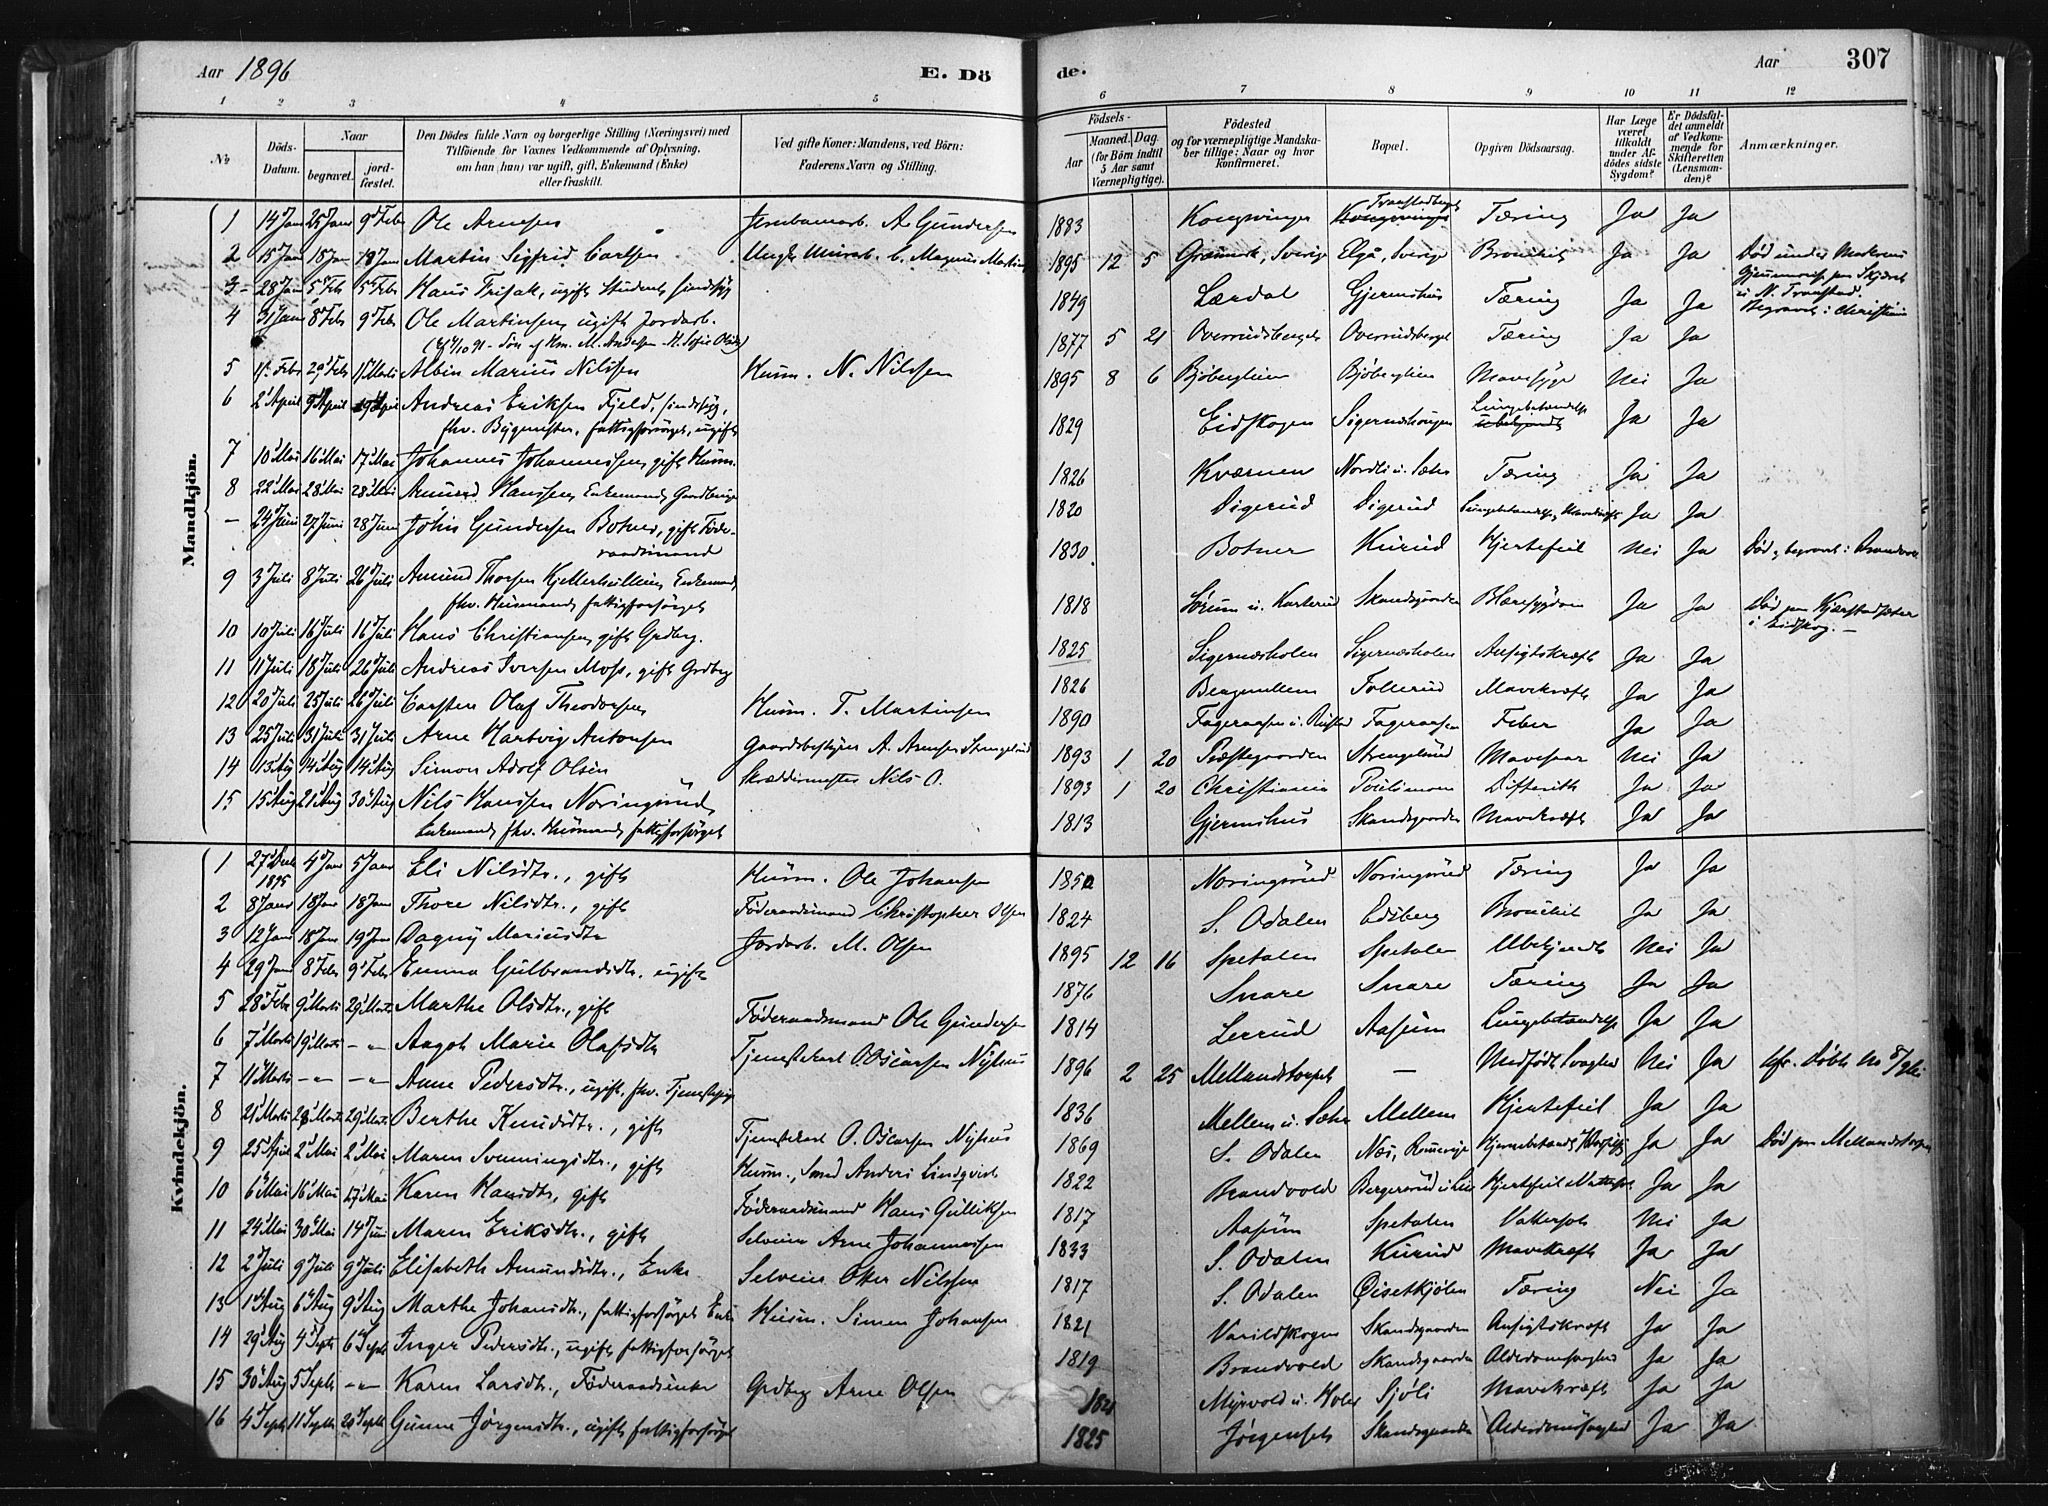 Aar 1896 E. Dö de. Aar 307
1 2 3 4 5 6 7 8 9 10 11 12
No Döds-Datum. Naar begravet. jordfæstet. Den Dödes fulde Navn og borgerlige Stilling (Næringsvei) med Tilföiende for Voxnes Vedkommende af Oplysning, om han (hun) var ugift, gift, Enkemand (Enke) eller fraskilt. Ved gifte Koner: Mandens, ved Börn: Faderens Navn og Stilling. Födsels- Aar Maaned. Dag. (for Börn indtil 5 Aar samt Værnepligtige). Födested og for værnepligtige Mandskaber tillige: Naar og hvor konfirmeret. Bopæl. Opgiven Dödsaarsag. Har Læge været tilkaldt under Afdödes sidste Sygdom? Er Dödsfaldet anmeldt af Vedkommende for Skifteretten (Lensmanden)? Anmærkninger.
Mandkjön.
1 14 Jan 25 Jan 9 Febr Ole Arnesen Jernbanearb. A. Gundersen 1883 Kongsvinger Tæring Ja Ja
2 15 Jan 18 Jan 18 Jan Martin Sigfrid Carlsen C. Magnus 1895 12 5 Sverige Elgå, Sverige Bronchit Ja Ja Död under Moderens
3 28 Jan 5 Feb 5 Febr Hans ugift Student, sindssyg 1849 Lærdal Gjermshus Tæring Ja Ja N. Transtad. Begravet i Christiania
4 31 Jan 8 Febr 9 Febr Ole Martinsen, ugift Jordarb. 1877 5 21 Overudsberget Overudsberget Tæring Ja Ja
5 Febr 29 Febr Marts Albin Marius Nilssen Husm. N. Nilssen 1895 8 6 Mavesyge Nei Ja
6 2 April 9 April 19 April Andreas Eriksen Fjeld, sindssyg, 1829 Eidskogen Lungebetændelse Ja Ja
fhv. Bygmester, fattigforsörget, ugift
7 10 Mai 16 Mai 17 Mai Johannes Johannessen, gift Husm. 1826 Kværnen Tæring Ja Ja
8 22 Mai 28 Mai 28 Mai Amund Hanssen, Enkemand, 1820 Digerud Digerud Ja Ja
— 24 Juni 27 Juni 28 Juni John Gundersen Botner, gift Föderaadsmand 1830 Botner Kurud Hjertefeil Nei Ja Död og begravet i Brandvold
9 3 Juli 8 Juli 26 Juli Amund Thorsen Enkemand, 1818 Skandsgaarden Blæresygdom Ja Ja Död paa
fhv. Husmand, fattigforsörget i Eidskog. —
10 10 Juli 16 Juli 16 Juli Hans Christiansen, gift Grdbrg. 1825 Sigernæsholen Sigernæsholen Ansigtskræft Ja Ja
11 11 Juli 18 Juli 26 Juli Andreas Iversen Moss, gift Grdbrg 1826 Tollerud Mavekræft Ja Ja
12 20 Juli 25 Juli 26 Juli Carsten Olaf Theodorsen Husm. T. Martinsen 1890 Fageraasen Feber Ja Ja
13 25 Juli 31 Juli 31 Juli Arne Hartvig Antonsen Gaardsbestyrer A. Arnesen Strengelsrud 1893 1 20 Præstegaarden Strengelsrud Nei Ja
14 13 Aug 14 Aug 14 Aug Simon Adolf Olsen Skræddermester Nils O. 1893 1 20 Christiania Difterith Ja Ja
15 15 Aug 21 Aug 30 Aug Nils Hanssen Noringsrud, 1813 Gjermshus Skandsgaarden Mavekræft Ja Ja
Enkemand, fhv. Husmand, fattigforsörget
Kvindekjön.
1 27 Decbr 1895 4 Jan 5 Jan Eli Nilsdtr., gift Husm. Ole Johansen 1850 Noringsrud Noringsrud Tæring Ja Ja
2 8 Jan 18 Jan 18 Jan Thore Nilsdtr., gift Föderaadsmand Christopher Olsen 1824 S. Odalen Edsberg Bronchit Ja Ja
3 12 Jan 18 Jan 19 Jan Dagny Mariusdtr Jordarb. M. Olsen 1895 12 16 Spetalen Spetalen Ubekjendt Nei Ja
4 29 Jan 8 Febr 9 Febr Emma Gulbrandsdtr., ugift 1876 Snare Snare Tæring Ja Ja
5 28 Febr 9 Marts 29 Marts Marthe Olsdtr., gift Föderaadsmand Ole Gundersen 1814 Lerrud Aasum Lungebetændelse Ja Ja
6 7 Marts 19 Marts — " — Aagot Marie Olafsdtr Tjenestekarl O. Oscarsen Nyhus 1896 2 25 Mellandstorpet — Medfödt Svaghed Nei Ja
7 11 Marts — " — — " — Anne Pedersdtr., ugift, fhv. Tjenestepige 1836 Mellem Hjertefeil Ja Ja
8 21 Marts 28 Marts 29 Marts Berthe Knudsdtr., gift Tjenestekarl O. Oscarsen Nyhus 1869 S. Odalen Næs, Romerige Ja Ja Död paa Mellandstorpet
9 25 April 2 Mai 2 Mai Maren Svenningsdtr., gift Husm., Smed Anders Lindqvist 1822 Brandvold Hjertefeil Ja Ja
10 6 Mai 16 Mai 17 Mai Karen Hansdtr, gift Föderaadsmand Hans Gulliksen 1817 Aasum Spetalen Vattersot Nei Ja
11 24 Mai 30 Mai 14 Juni Maren Eriksdtr., gift Selveier Arne Johannessen 1833 S. Odalen Kurud Mavekræft Ja Ja
12 2 Juli 9 Juli 9 Juli Elisabeth Amundsdtr., Enke Selveier Otter Nilssen 1817 S. Odalen Öisetkjölen Tæring Nei Ja
13 1 Aug 6 Aug 9 Aug Marthe Johansdtr., fattigforsörget Enke Husm. Simen Johansen 1821 Varildskogen Skandsgaarden Ansigtskræft Ja Ja
14 29 Aug 4 Septb 6 Septb Inger Pedersdtr., ugift fattigforsörget 1819 Brandvold Skandsgaarden Alderdomssvaghed Ja Ja
15 30 Aug 5 Septb — " — Karen Larsdtr., Föderaadsenke Grdbrg Arne Olsen Sjöli Mavekræft Ja Ja
16 4 Septb 11 Septb 20 Septb Gunne Jörgensdtr., ugift fattigforsörget 1825 Skandsgaarden Alderdomssvaghed Ja Ja